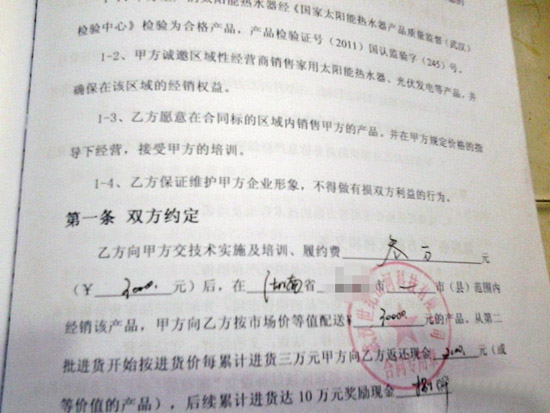 的太阳能热水器经《国家太阳能热水器产品质量监督(武汉)
检验中心》检验为合格产品，产品检验证号（2011）国认监验字（245）号。
1-2、甲方诚邀区域性经营商销售家用太阳能热水器、光伏发电等产品，并
确保在该区域的经销权益。
1-3、乙方愿意在合同标的区域内销售甲方的产品，并在甲方规定价格的指
导下经营，接受甲方的培训。
1-4、乙方保证维护甲方企业形象，不得做有损双方利益的行为。
第一条 双方约定
乙方向甲方交技术实施及培训、履约费 叁万 元
（￥ 元）后，在 湖南 省 市 市（县）范围内
经销该产品，甲方向乙方按市场价等值配送￥ 30000 元的产品，从第二
批进货开始按进货价每累计进货三万元甲方向乙方返还现金 元（或
等价值的产品），后续累计进货达 10 万元奖励现金
合同专用章